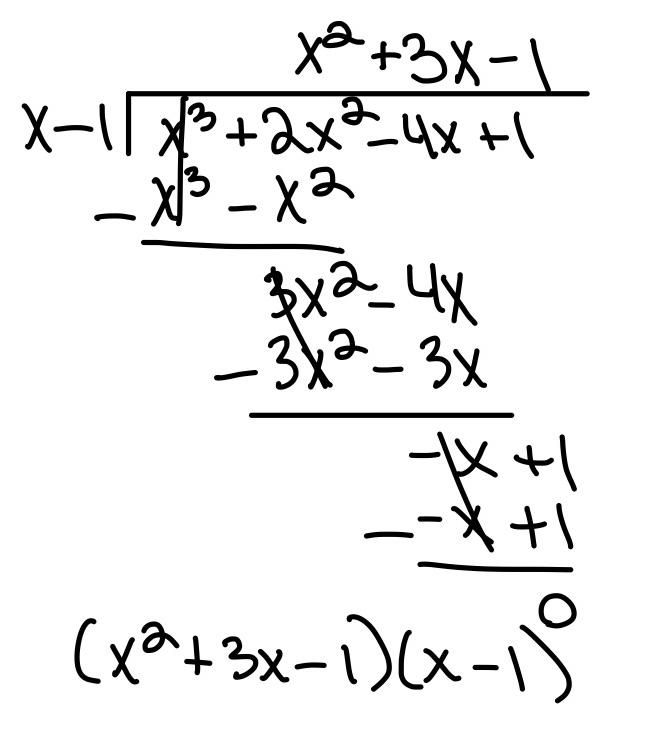 x²+3x-1
x-1 x³+2x²-4x+1
-x³-x²
3x²-4x
-3x²-3x
-x+1
--x+1
0
(x²+3x-1)(x-1)